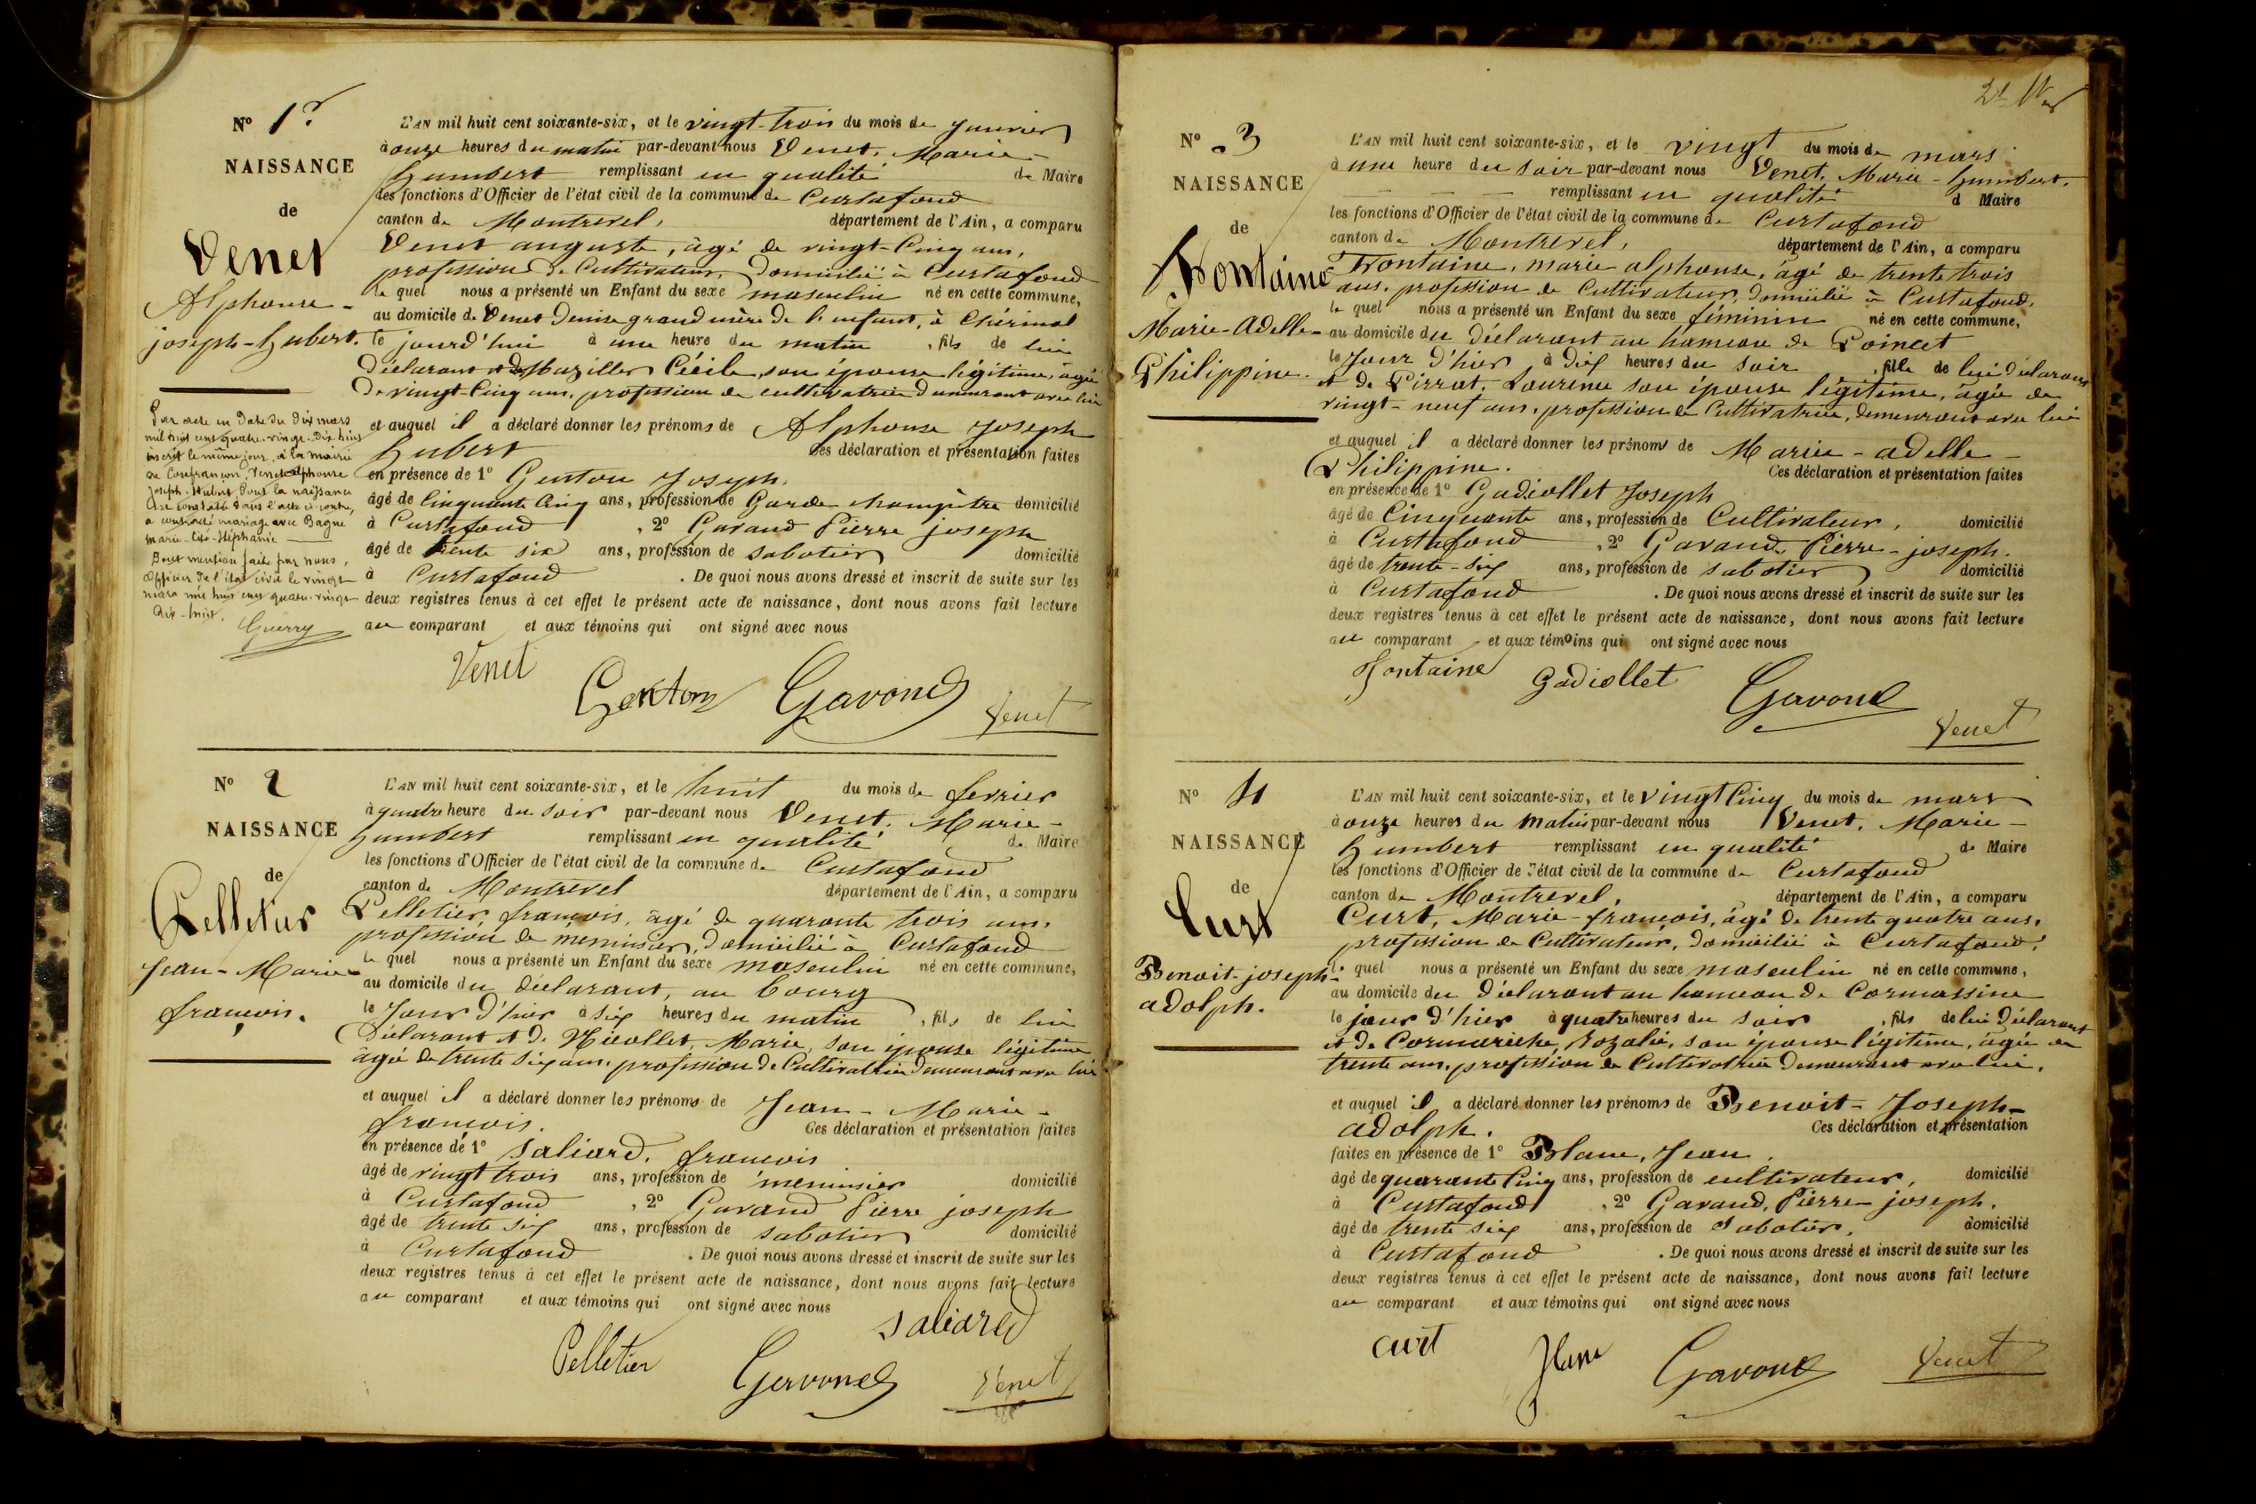 N° 1er
NAISSANCE
de
Venet
Alphonse -
joseph - hubert.
Par acte en date du dix mars
mil huit cent quatre-vingt-dix huit
inscrit le même jour, à la mairie
de Confrançon, Venet alphonse
Joseph-Hubert, dont la naissance
est constatée dans l'acte ci-contre,
a contracté mariage avec Bagne
marie- -Stéphanie
Dont mention faite par nous,
Officier de l'état civil le vingt
mars mil huit cent quatre-vingt
dix-huit.
Guerry
L'AN mil huit cent soixante-six, et le vingt-trois du mois de janvier
à onze heures du matin par-devant nous Venet, Marie -
humbert remplissant en qualité de Maire
des fonctions d'Officier de l'état civil de la commune de Curtafond
canton de Montrevel, département de l'Ain, a comparu
Venet auguste, âgé de vingt-cinq ans,
profession de Cultivateur, domicilié à Curtafond
le quel nous a présenté un Enfant du sexe masculin né en cette commune,
au domicile de Venet Denise grand mère de l'enfant, à Chérinal
le jourd'hui à une heure du matin , fils de lui
déclarant et de Maziller Cécile, son épouse légitime, agée
de vingt-cinq ans, profession de cultivatrice demeurant avec lui
et auquel il a déclaré donner les prénoms de Alphonse Joseph
hubert Ces déclaration et présentation faites
en présence de 1° Genton Joseph,
âgé de Cinquante Cinq ans, profession de Garde champêtre domicilié
à Curtafond , 2° Gavand Pierre joseph
âgé de trente six ans, profession de sabotier domicilié
à Curtafond . De quoi nous avons dressé et inscrit de suite sur les
deux registres tenus à cet effet le présent acte de naissance, dont nous avons fait lecture
au comparant et aux témoins qui ont signé avec nous
Venet
Genton Gavand Venet
N° 2
NAISSANCE
de
Pelletier
Jean - Marie -
françois.
L'AN mil huit cent soixante-six, et le huit du mois de fevrier
à quatre heure du soir par-devant nous Venet, Marie -
humbert remplissant en qualité de Maire
les fonctions d'Officier de l'état civil de la commune de Curtafond
canton de Montrevel département de l'Ain, a comparu
Pelletier, françois, âgé de quarante trois ans,
profession de menuisier, domicilié à Curtafond
le quel nous a présenté un Enfant du sexe masculin né en cette commune,
au domicile du déclarant, au bourg
le Jour d'hier à six heures du matin , fils de lui
déclarant et de Nicollet, Marie, son épouse légitime
âgée de trente six ans, profession de Cultivatrice demeurant avec lui
et auquel il a déclaré donner les prénoms de Jean - Marie -
françois. Ces déclaration et présentation faites
en présence de 1° Saliard, françois
âgé de vingt trois ans, profession de menuisier domicilié
à Curtafond , 2° Gavand Pierre joseph
âgé de trente six ans, profession de sabotier domicilié
à Curtafond . De quoi nous avons dressé et inscrit de suite sur les
deux registres tenus à cet effet le présent acte de naissance, dont nous avons fait lecture
au comparant et aux témoins qui ont signé avec nous
Saliard
Pelletier Gavand Venet
N° 3
NAISSANCE
de
Fontaine
Marie - Adelle -
Philippine.
L'AN mil huit cent soixante-six, et le vingt du mois de mars
à une heure du soir par-devant nous Venet, Marie - humbert.
remplissant en qualité d Maire
les fonctions d'Officier de l'état civil de la commune de Curtafond
canton de Montrevel, département de l'Ain, a comparu
Fontaine, marie alphonse, âgé de trente trois
ans, profession de Cultivateur, domicilié à Curtafond,
le quel nous a présenté un Enfant du sexe féminin né en cette commune,
au domicile du déclarant au hameau de Poincet
le Jour d'hier à dix heures du soir , fille de lui déclarant
et de Pirrat, Laurence son épouse légitime, âgée de
vingt - neuf ans, profession de Cultivatrice, demeurant avec lui
et auquel il a déclaré donner les prénoms de Marie - adelle -
Philippine. Ces déclaration et présentation faites
en présence de 1° Gadiollet Joseph
âgé de Cinquante ans, profession de Cultivateur, domicilié
à Curtafond , 2° Gavand, Pierre - joseph.
âgé de trente - six ans, profession de sabotier domicilié
à Curtafond . De quoi nous avons dressé et inscrit de suite sur les
deux registres tenus à cet effet le présent acte de naissance, dont nous avons fait lecture
au comparant et aux témoins qui ont signé avec nous
Fontaine Gadiollet Gavand
Venet
N° 4
NAISSANCE
de
Curt
Benoit - joseph -
adolph.
L'AN mil huit cent soixante-six, et le vingt Cinq du mois de mars
à onze heures du matin par-devant nous Venet, Marie -
humbert remplissant en qualité de Maire
les fonctions d'Officier de l'état civil de la commune de Curtafond
canton de Montrevel, département de l'Ain, a comparu
Curt, Marie - françois, âgé de trente quatre ans,
profession de Cultivateur, domicilié à Curtafond,
le quel nous a présenté un Enfant du sexe masculin né en cette commune,
au domicile du déclarant au hameau de Cormassine
le jour d'hier à quatre heures du soir , fils de lui déclarant
et de Cormarèche, Rozalie, son épouse légitime, agée de
trente ans, profession de Cultivatrice demeurant avec lui.
et auquel il a déclaré donner les prénoms de Benoit - Joseph -
adolph. Ces déclaration et présentation
faites en présence de 1° Blanc, Jean.
âgé de quarante Cinq ans, profession de cultivateur, domicilié
à Curtafond , 2° Gavand, Pierre - joseph.
âgé de trente six ans, profession de Sabotier, domicilié
à Curtafond . De quoi nous avons dressé et inscrit de suite sur les
deux registres tenus à cet effet le présent acte de naissance, dont nous avons fait lecture
au comparant et aux témoins qui ont signé avec nous
curt Blanc Gavand Venet